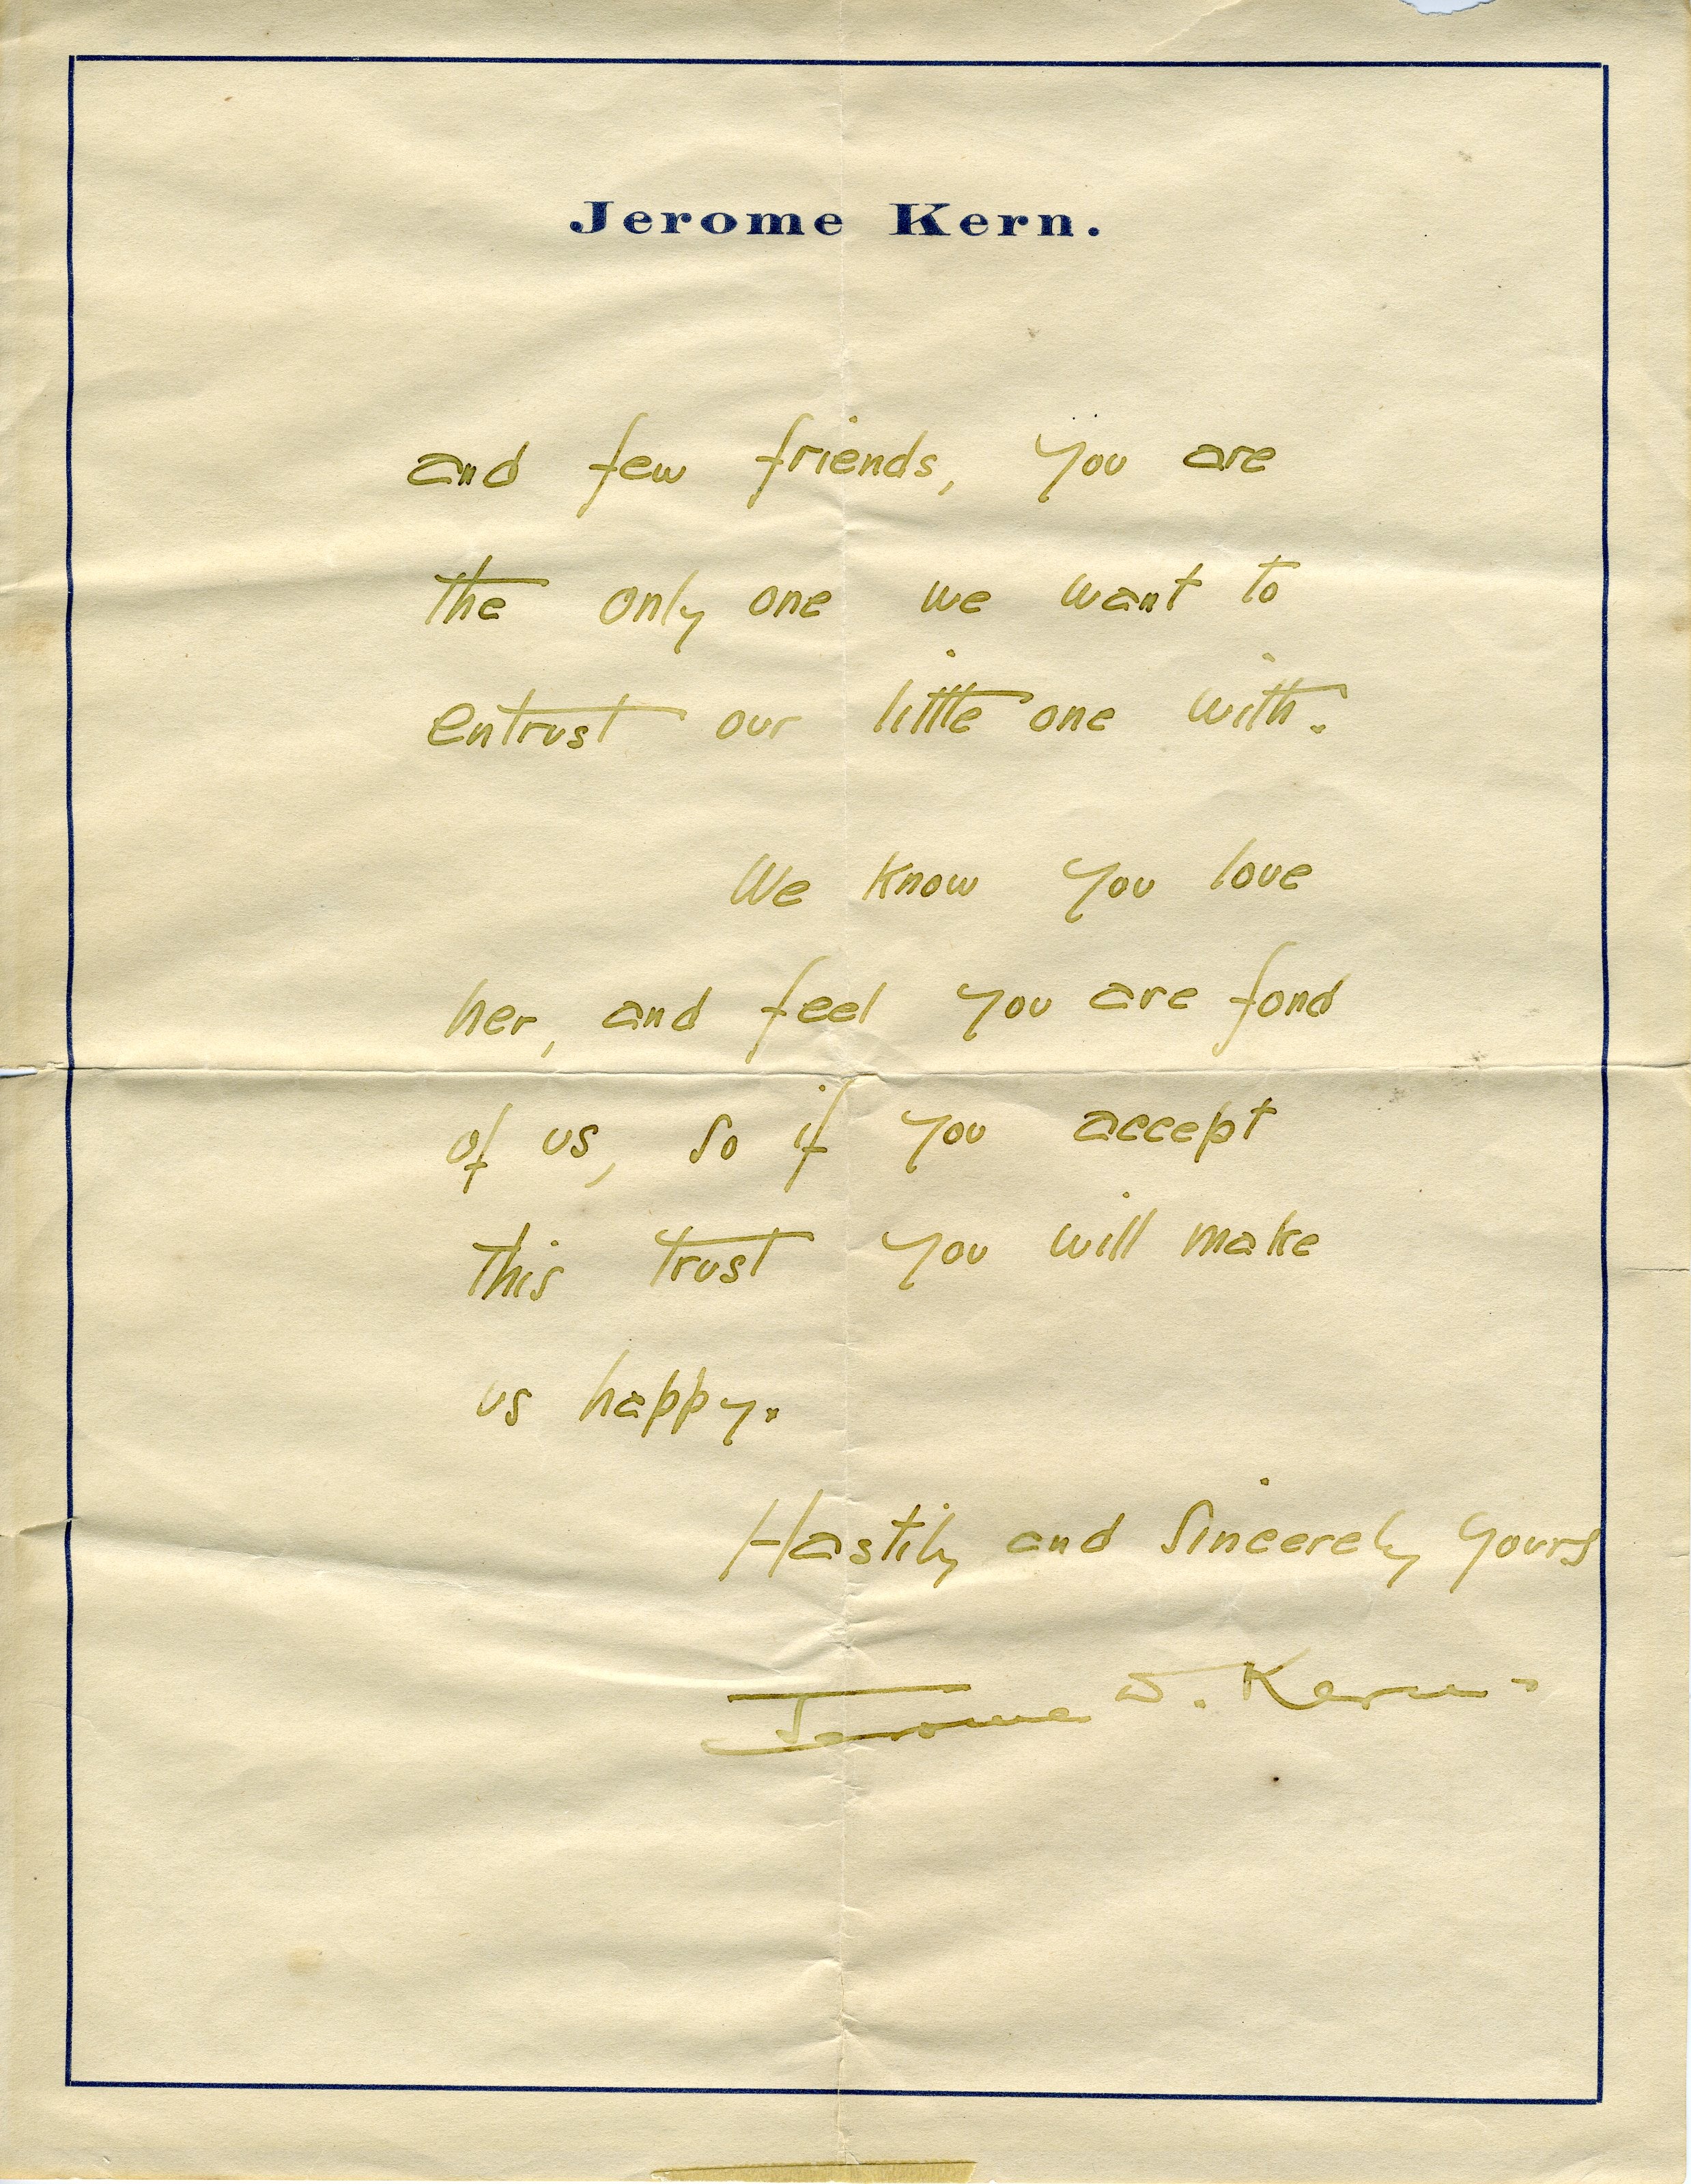 Jerome Kern.
and few friends, you are
the only one we want to
entrust our little one with.
We know you love
her, and feel you are fond
of us, so if you accept
this trust you will make
us happy.
Hastily and Sincerely Yours
Jerome D. Kern.